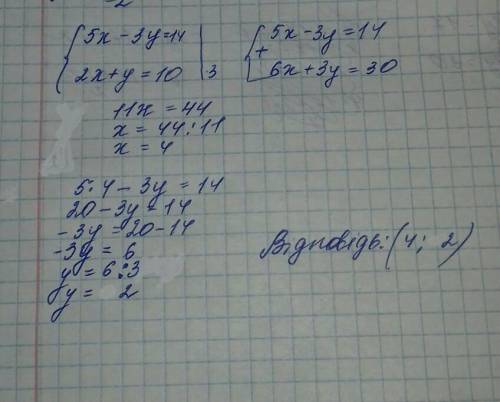 5x - 3y = 14
2x + y = 10 | 3
5x - 3y = 14
+
6x + 3y = 30
11x = 44
x = 44 : 11
x = 4
5 · 4 - 3y = 14
20 - 3y = 14
-3y = 20 - 14
-3y = 6
y = 6 : 3
y = 2
Відповідь: (4; 2)